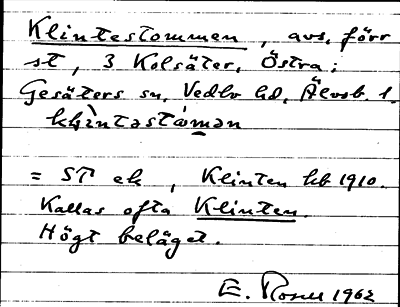 Klintestommen, avs, förr
st, 3 Kolsäter, Östra;
Gesäters sn, Vedbo hd, Älvsb. l.
= ST ek, Klinten hb 1910.
Kallas ofta Klinten.
Högt beläget.
E. Rosell 1962